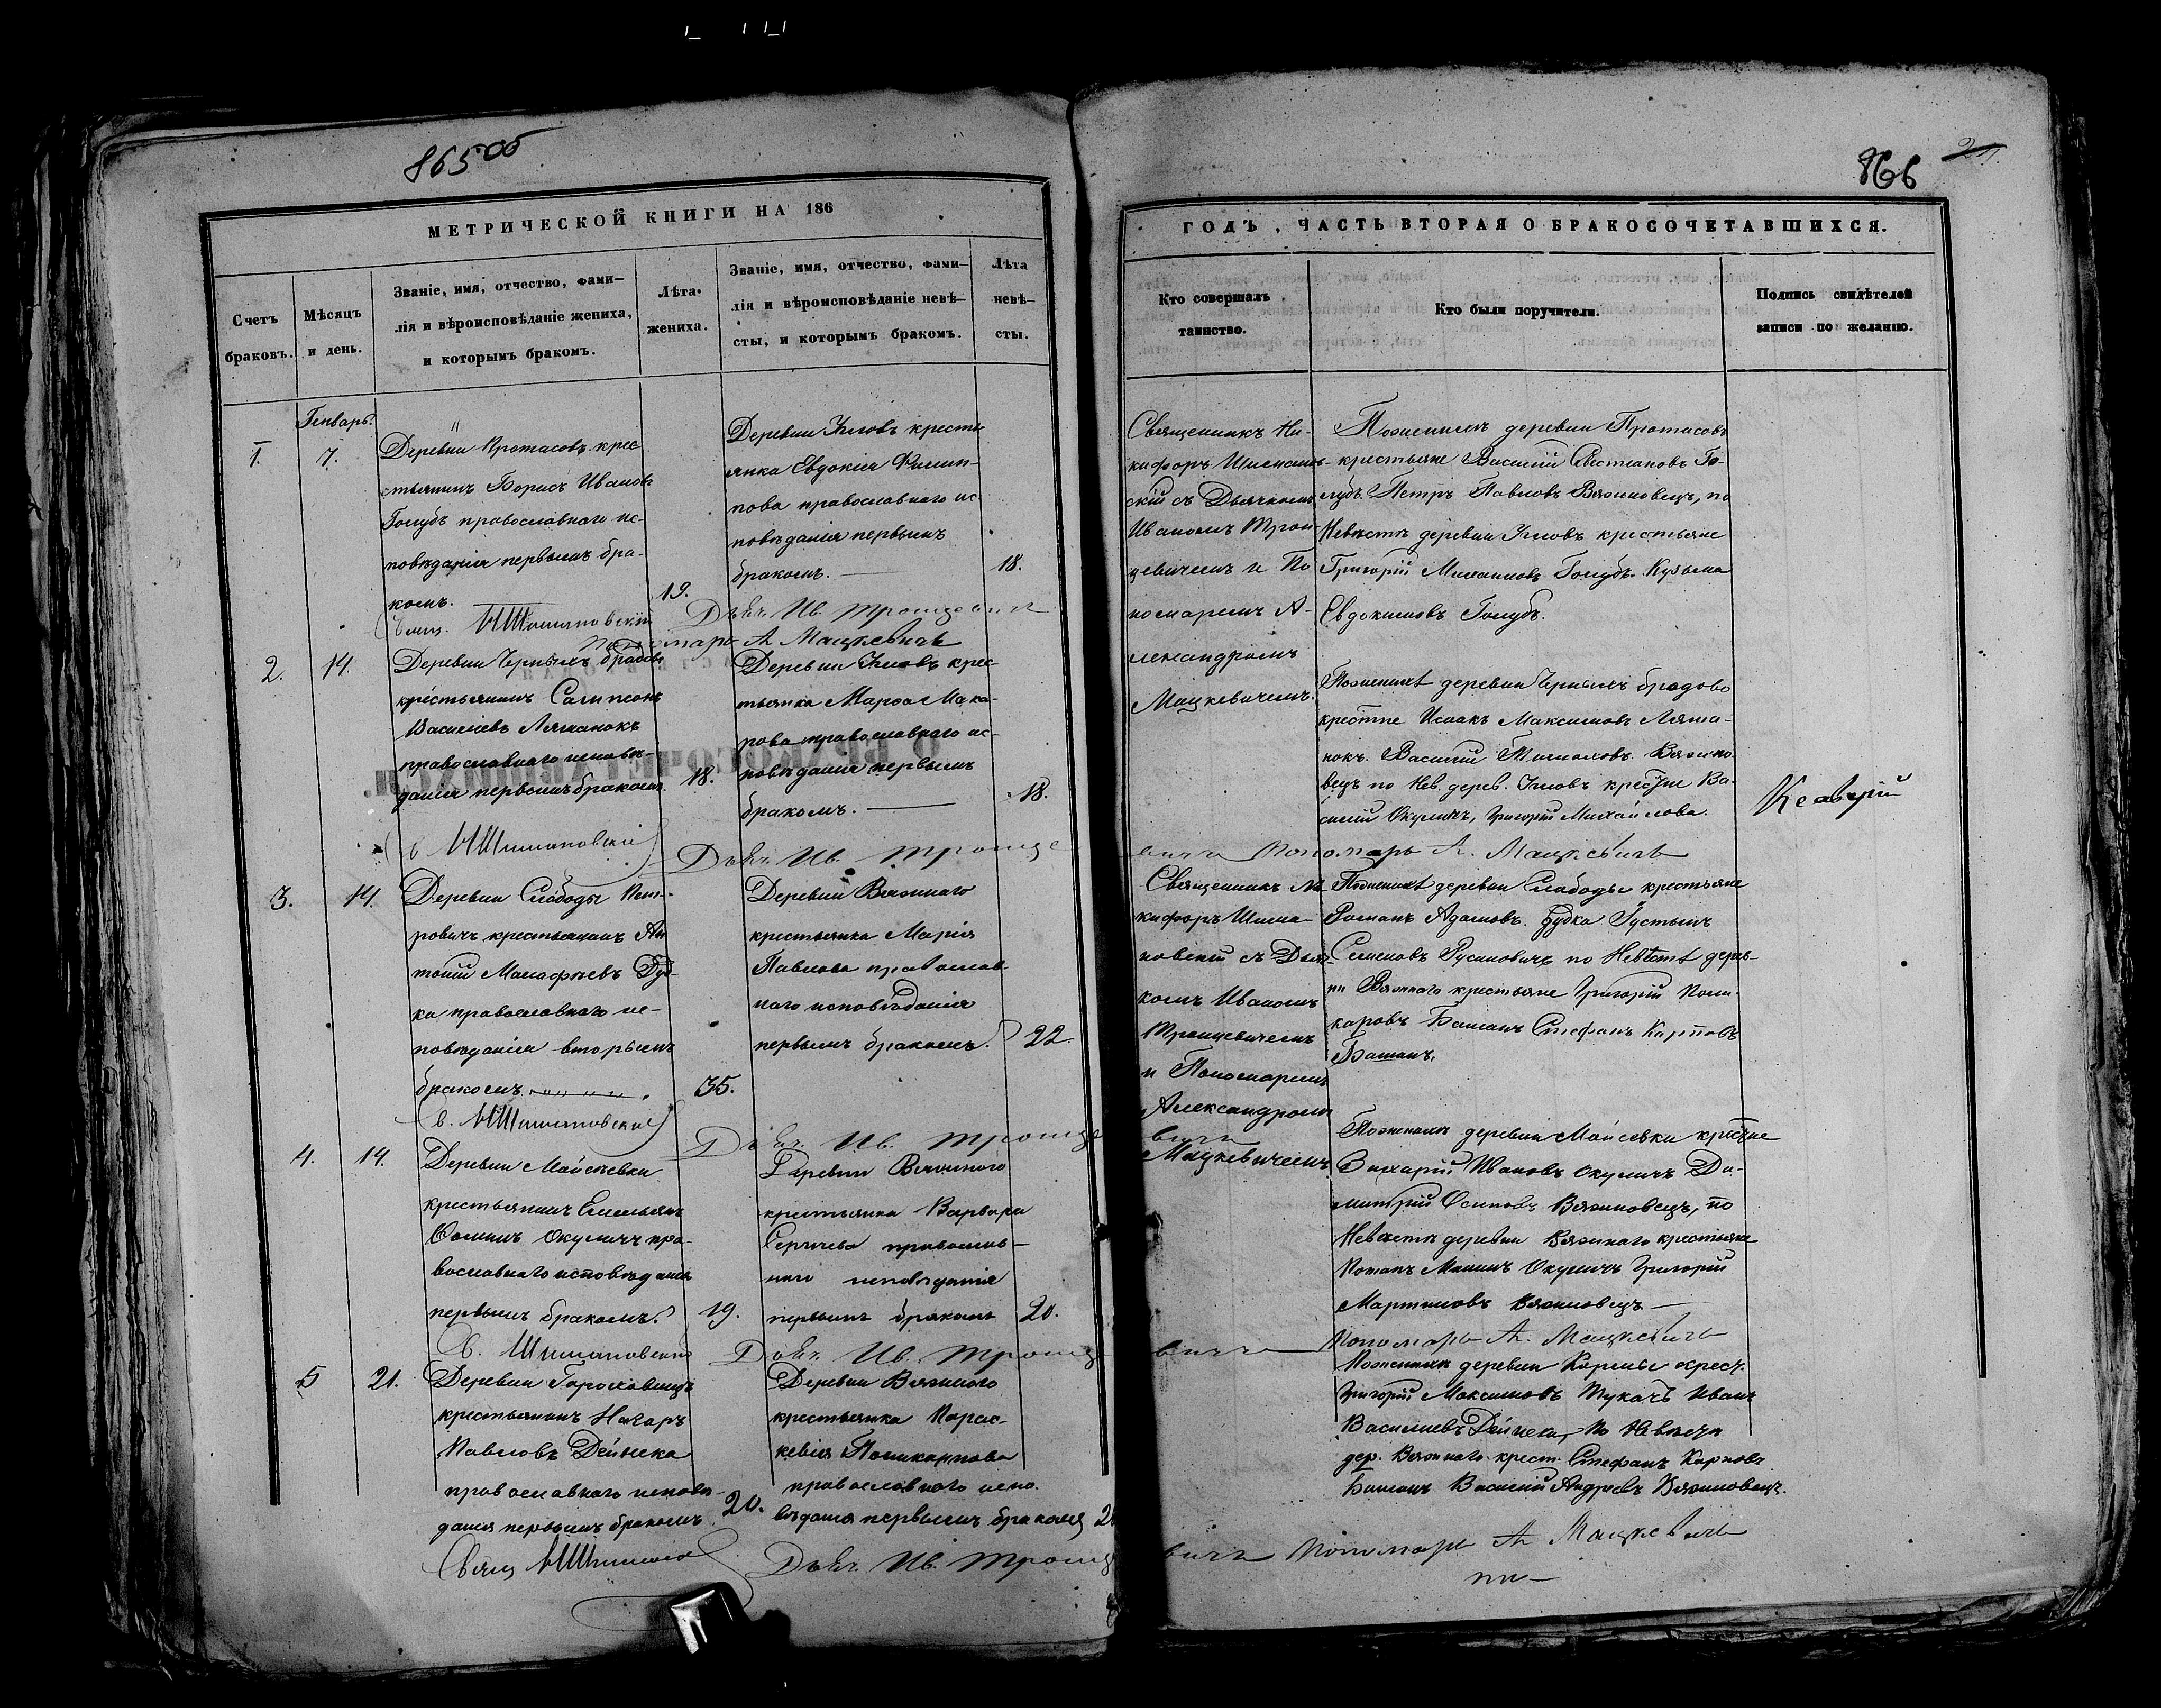 865 об
866
21
МЕТРИЧЕСКОЙ КНИГИ НА 186
Счетъ
браковъ.
Мѣсяцъ
и день.
Званіе, имя, отчество, фами-
лія и вѣроисповѣданіе жениха,
и которымъ бракомъ.
Лѣта
жениха.
Званіе, имя, отчество, фами-
лія и вѣроисповѣданіе невѣ-
сты, и которымъ бракомъ.
Лѣта
невѣ-
сты.
Генварь.
1.
7.
Деревни Протасовъ крес
тьянинъ Борисъ Ивановъ
Голубъ православнаго ис-
повѣданія первымъ бра-
комъ.
19.
Деревни Угловъ кресть
янка Евдокія Филип-
пова православнаго ис
повѣданія первымъ
бракомъ.
18.
Дьяч. Ив. Троицевичъ
Пономарь А Мацкевичъ
2.
14.
Деревни Черныхъ бродовъ
крестьянинъ Сампсонъ
Василіевъ Ляшанокъ
православнаго исповѣ-
данія первымъ бракомъ
18.
Деревни Угловъ крес
тьянка Марѳа Мака-
рова православнаго ис-
повѣданія первымъ
бракомъ.
18.
Дьяч. Ив. Троице
3.
14.
Деревни Слободы Пет-
ровичъ крестьянинъ Ан
тоній Малафѣевъ Дуд-
ка православнаго ис-
повѣданія вторымъ
бракомъ.
35.
Деревни Вяжнаго
крестьянка Марія
Павлова православ-
наго исповѣданія
первымъ бракомъ.
22.
Дьяч. Ив. Троице
4.
14.
Деревни Мойсѣевки
крестьянинъ Емельянъ
Ѳоминъ Окуличъ пра-
вославнаго исповѣданія
первымъ бракомъ.
19.
Деревни Вяжнаго
крестьянка Варвара
Сергѣева православ-
наго исповѣданія
первымъ бракомъ
20.
Дьяч. Ив. Троице
5
21.
Деревни Гороховищъ
крестьянинъ Назаръ
Павловъ Дейнека
православнаго исповѣ-
данія первымъ бракомъ
20.
Деревни Вяжнаго
крестьянка Парас-
кевія Поликарпова
православнаго испо-
вѣданія первымъ бракомъ
Дьяч. Ив. Троице
ГОДЪ, ЧАСТЬ ВТОРАЯ О БРАКОСОЧЕТАВШИХСЯ.
Кто совершалъ
таинство.
Кто были поручители.
Подпись свидѣтелей
записи по желанію.
Священникъ Ни-
кифоръ Шиманов-
скій съ Дьячкомъ
Иваномъ Трои-
цевичемъ и По
номаремъ А-
лександромъ
Мацкевичемъ.
По женихѣ деревни Протасовъ
крестьяне Василій Севстіановъ Го-
лубъ. Петръ Павловъ Вяжновецъ, по
Невѣстѣ деревни Угловъ крестьяне
Григорій Михаиловъ Голубъ. Кузьма
Евдокимовъ Голубъ.
По женихѣ деревни Черныхъ бродовъ
крестне Исаакъ Максимовъ Ляша-
нокъ. Василій Вяжно-
вецъ по Нев. дерев. Угловъ крестне Ва-
силій Окуличъ, Григорій Михайлова.
вичъ Пономарь А. Мацкевичъ
Священникъ Ни
кифоръ Шима-
новскій съ Дьяч-
комъ Иваномъ
Троицевичемъ
и Пономаремъ
Александромъ
Мацкевичемъ
По женихѣ деревни Слободы крестьяне
Романъ Адамовъ Дудка Устинъ
Семеновъ Русиновичъ по Невѣстѣ дерев-
ни Вяжнаго крестьяне Григорій Поли-
карповъ Башанъ Стефанъ Карповъ
Башанъ.
По женихѣ деревни Мойсѣевки крестне
Захарій Ивановъ Окуличъ Ди-
митрій Осиповъ Вяжновецъ, по
Невѣстѣ деревни Вяжнаго крестьяне
Потапъ Окуличъ Григорій
Мартиновъ Вяжновецъ
вичъ Пономарь А. Мацкевичъ
По женихѣ деревни крест.
Григорій Максимовъ Тукачъ Иванъ
Василіевъ Дейнека, по Невѣстѣ
дер. Вяжнаго крест. Стефанъ Карповъ
Башанъ Василій Андреевъ Вяжновецъ.
вичъ Пономарь А Мацкевичъ